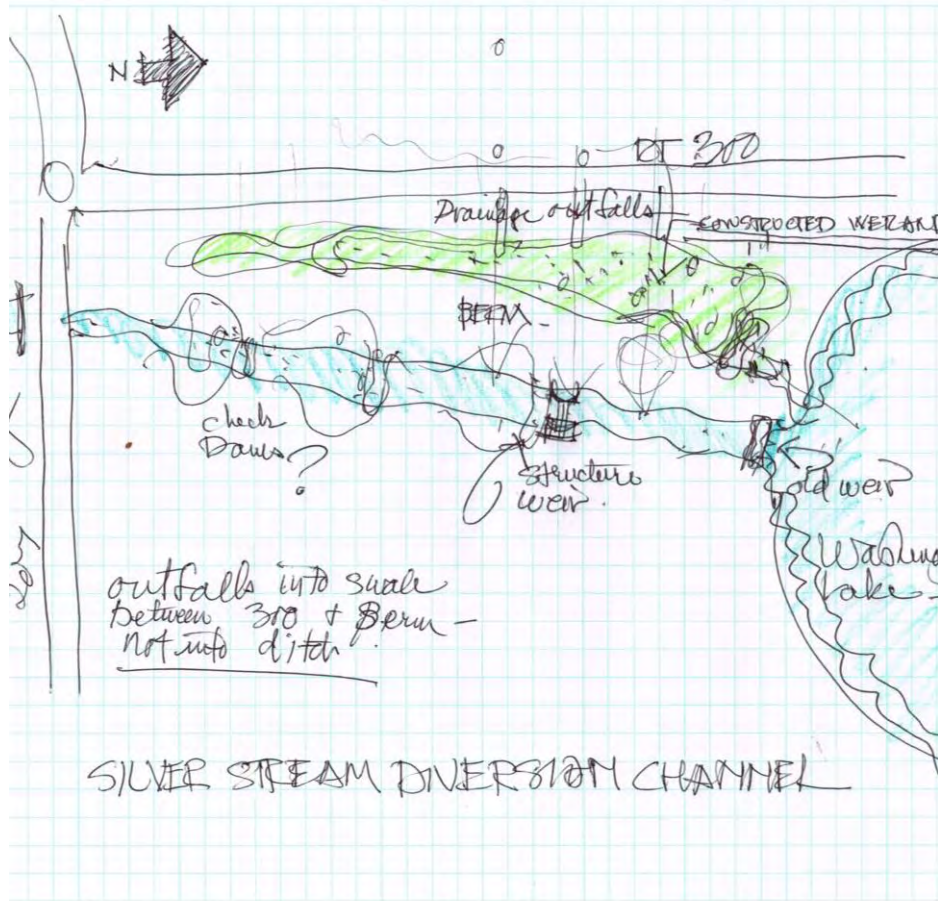 N
RT 300
Drainage outfalls
CONSTRUCTED WETLAND
BERM
check
Dams?
structure
weir.
old weir
Lake
outfalls into swale
Between 300 & Berm -
Not into ditch.
SILVER STREAM DIVERSION CHANNEL